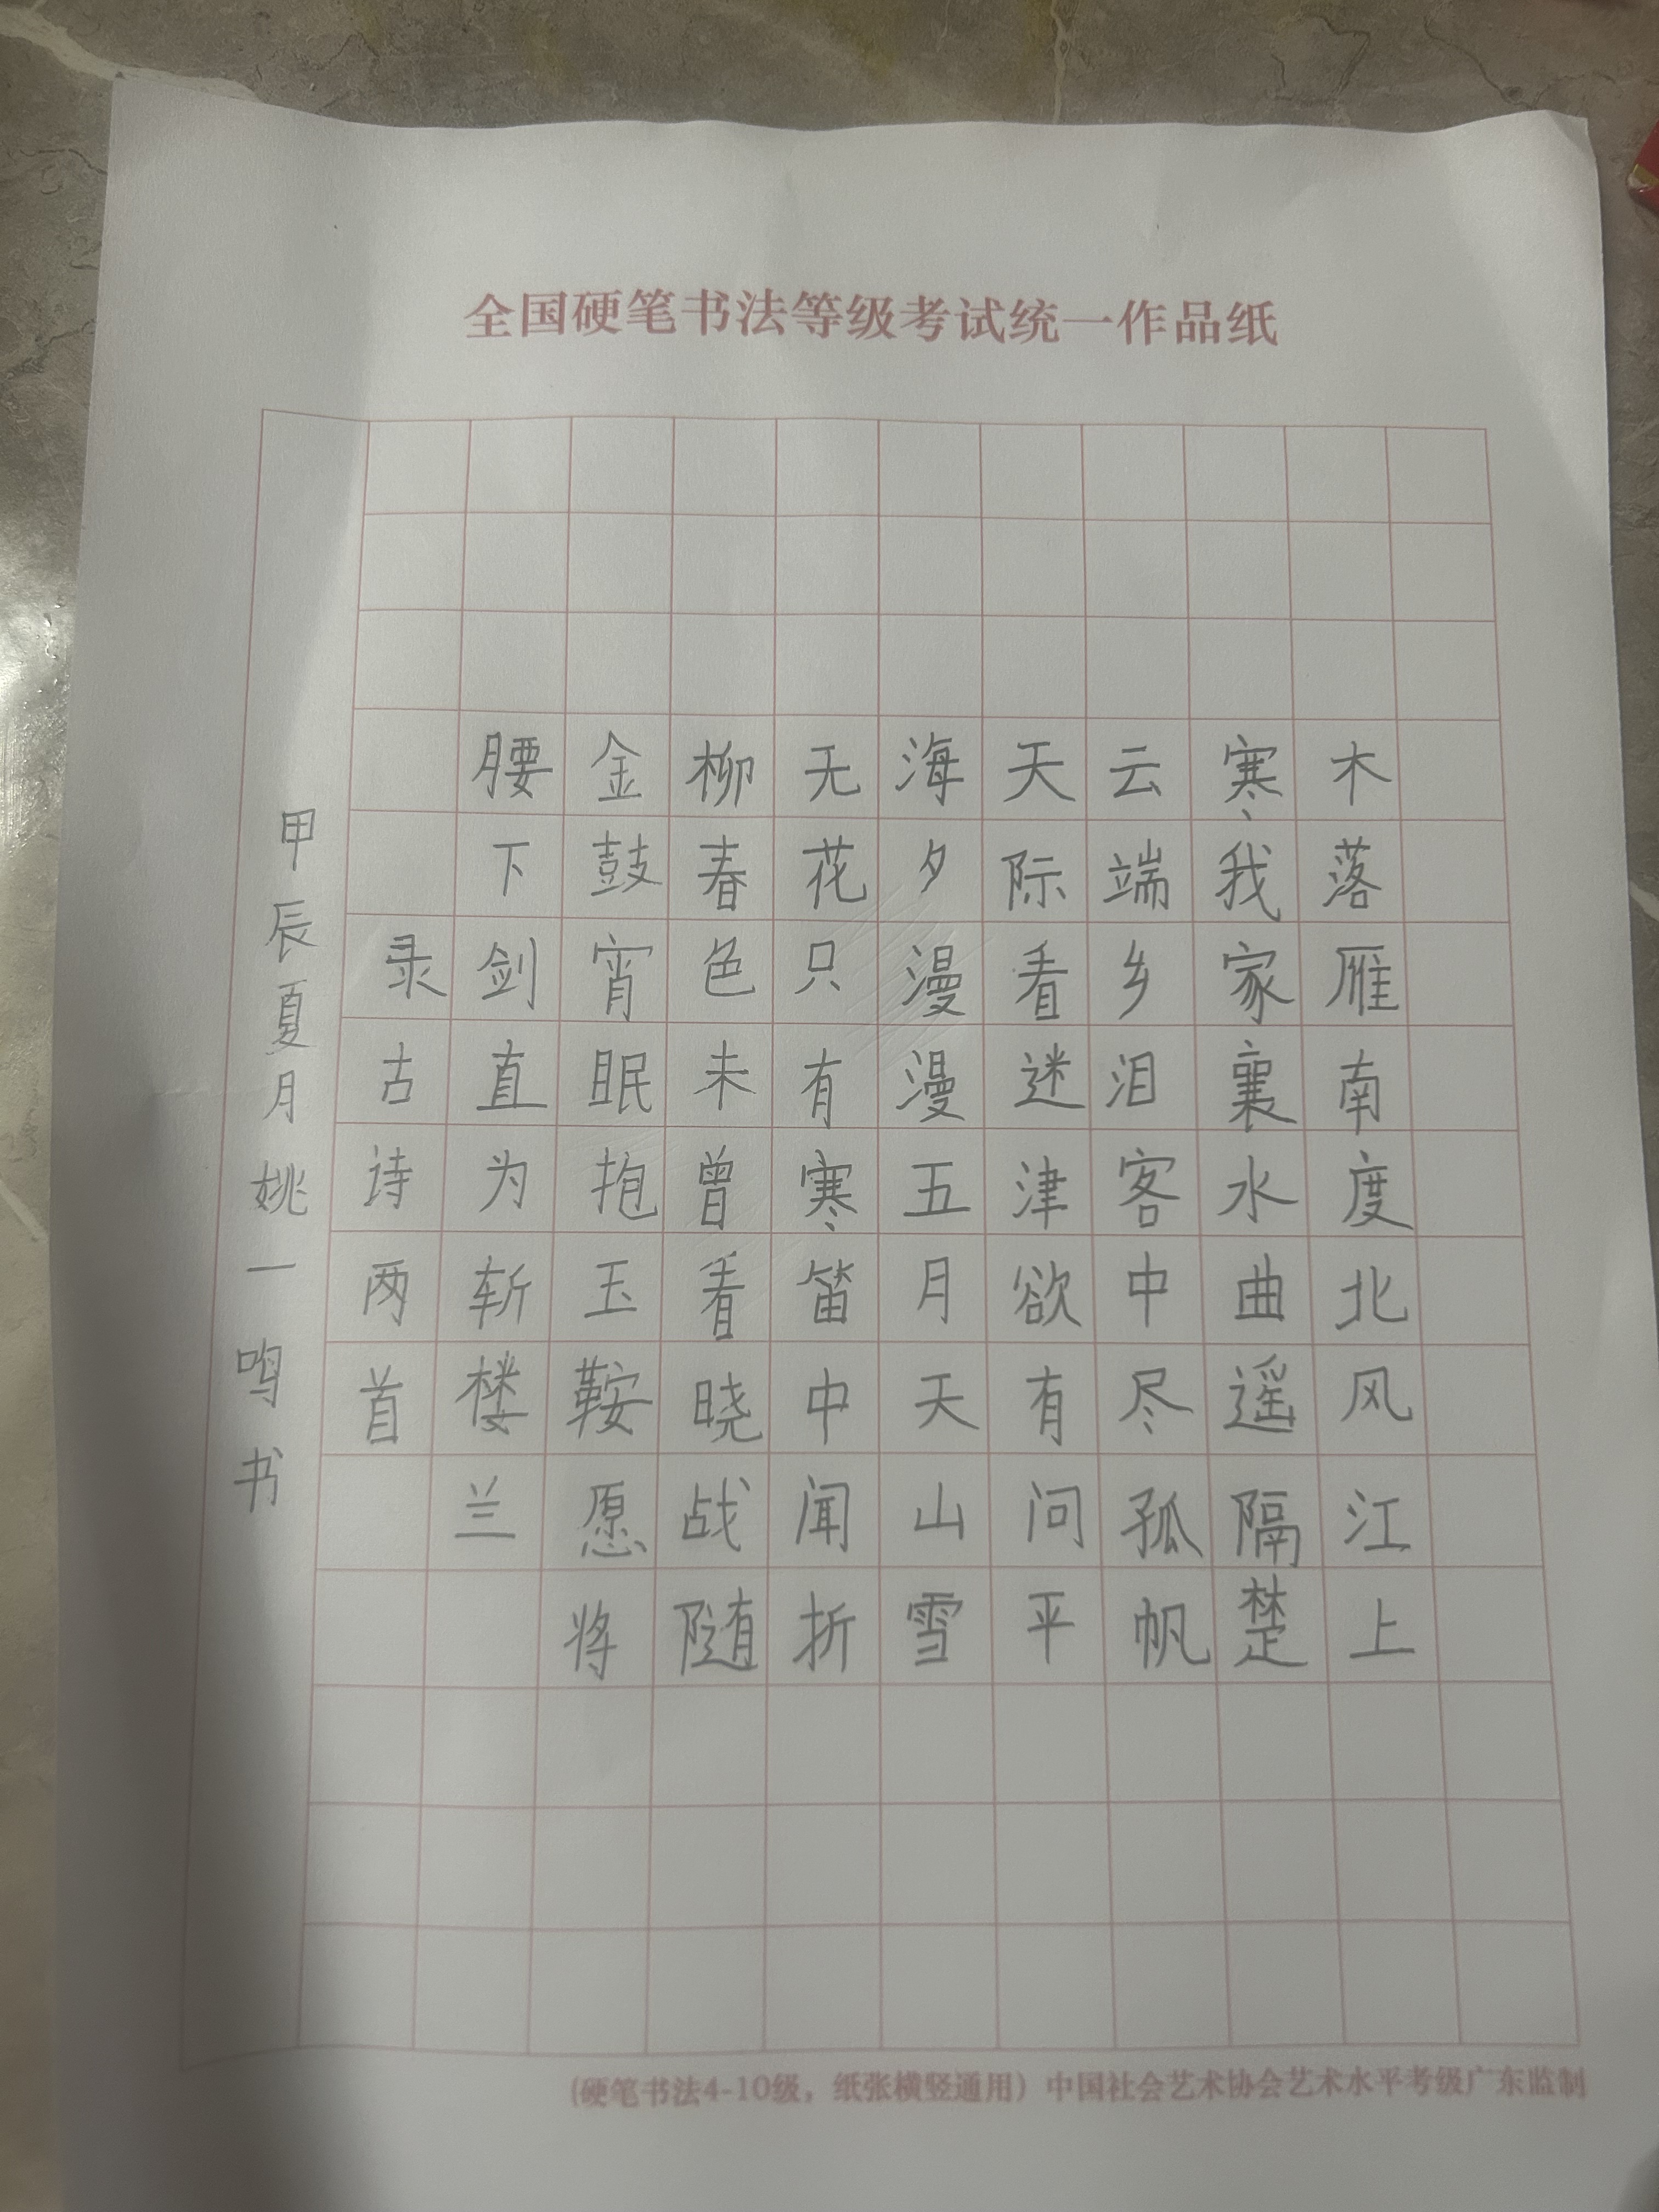 全国硬笔书法等级考试统一作品纸
木落雁南度北风江上
寒我家襄水曲遥隔楚
云端乡泪客中尽孤帆
天际看迷津欲有问平
海夕漫漫五月天山雪
无花只有寒笛中闻折
柳春色未曾看晓战随
金鼓宵眠抱玉鞍愿将
腰下剑直为斩楼兰
录古诗两首
甲辰夏月姚一鸣书
(硬笔书法4-10级，纸张横竖通用）中国社会艺术协会艺术水平考级广东监制